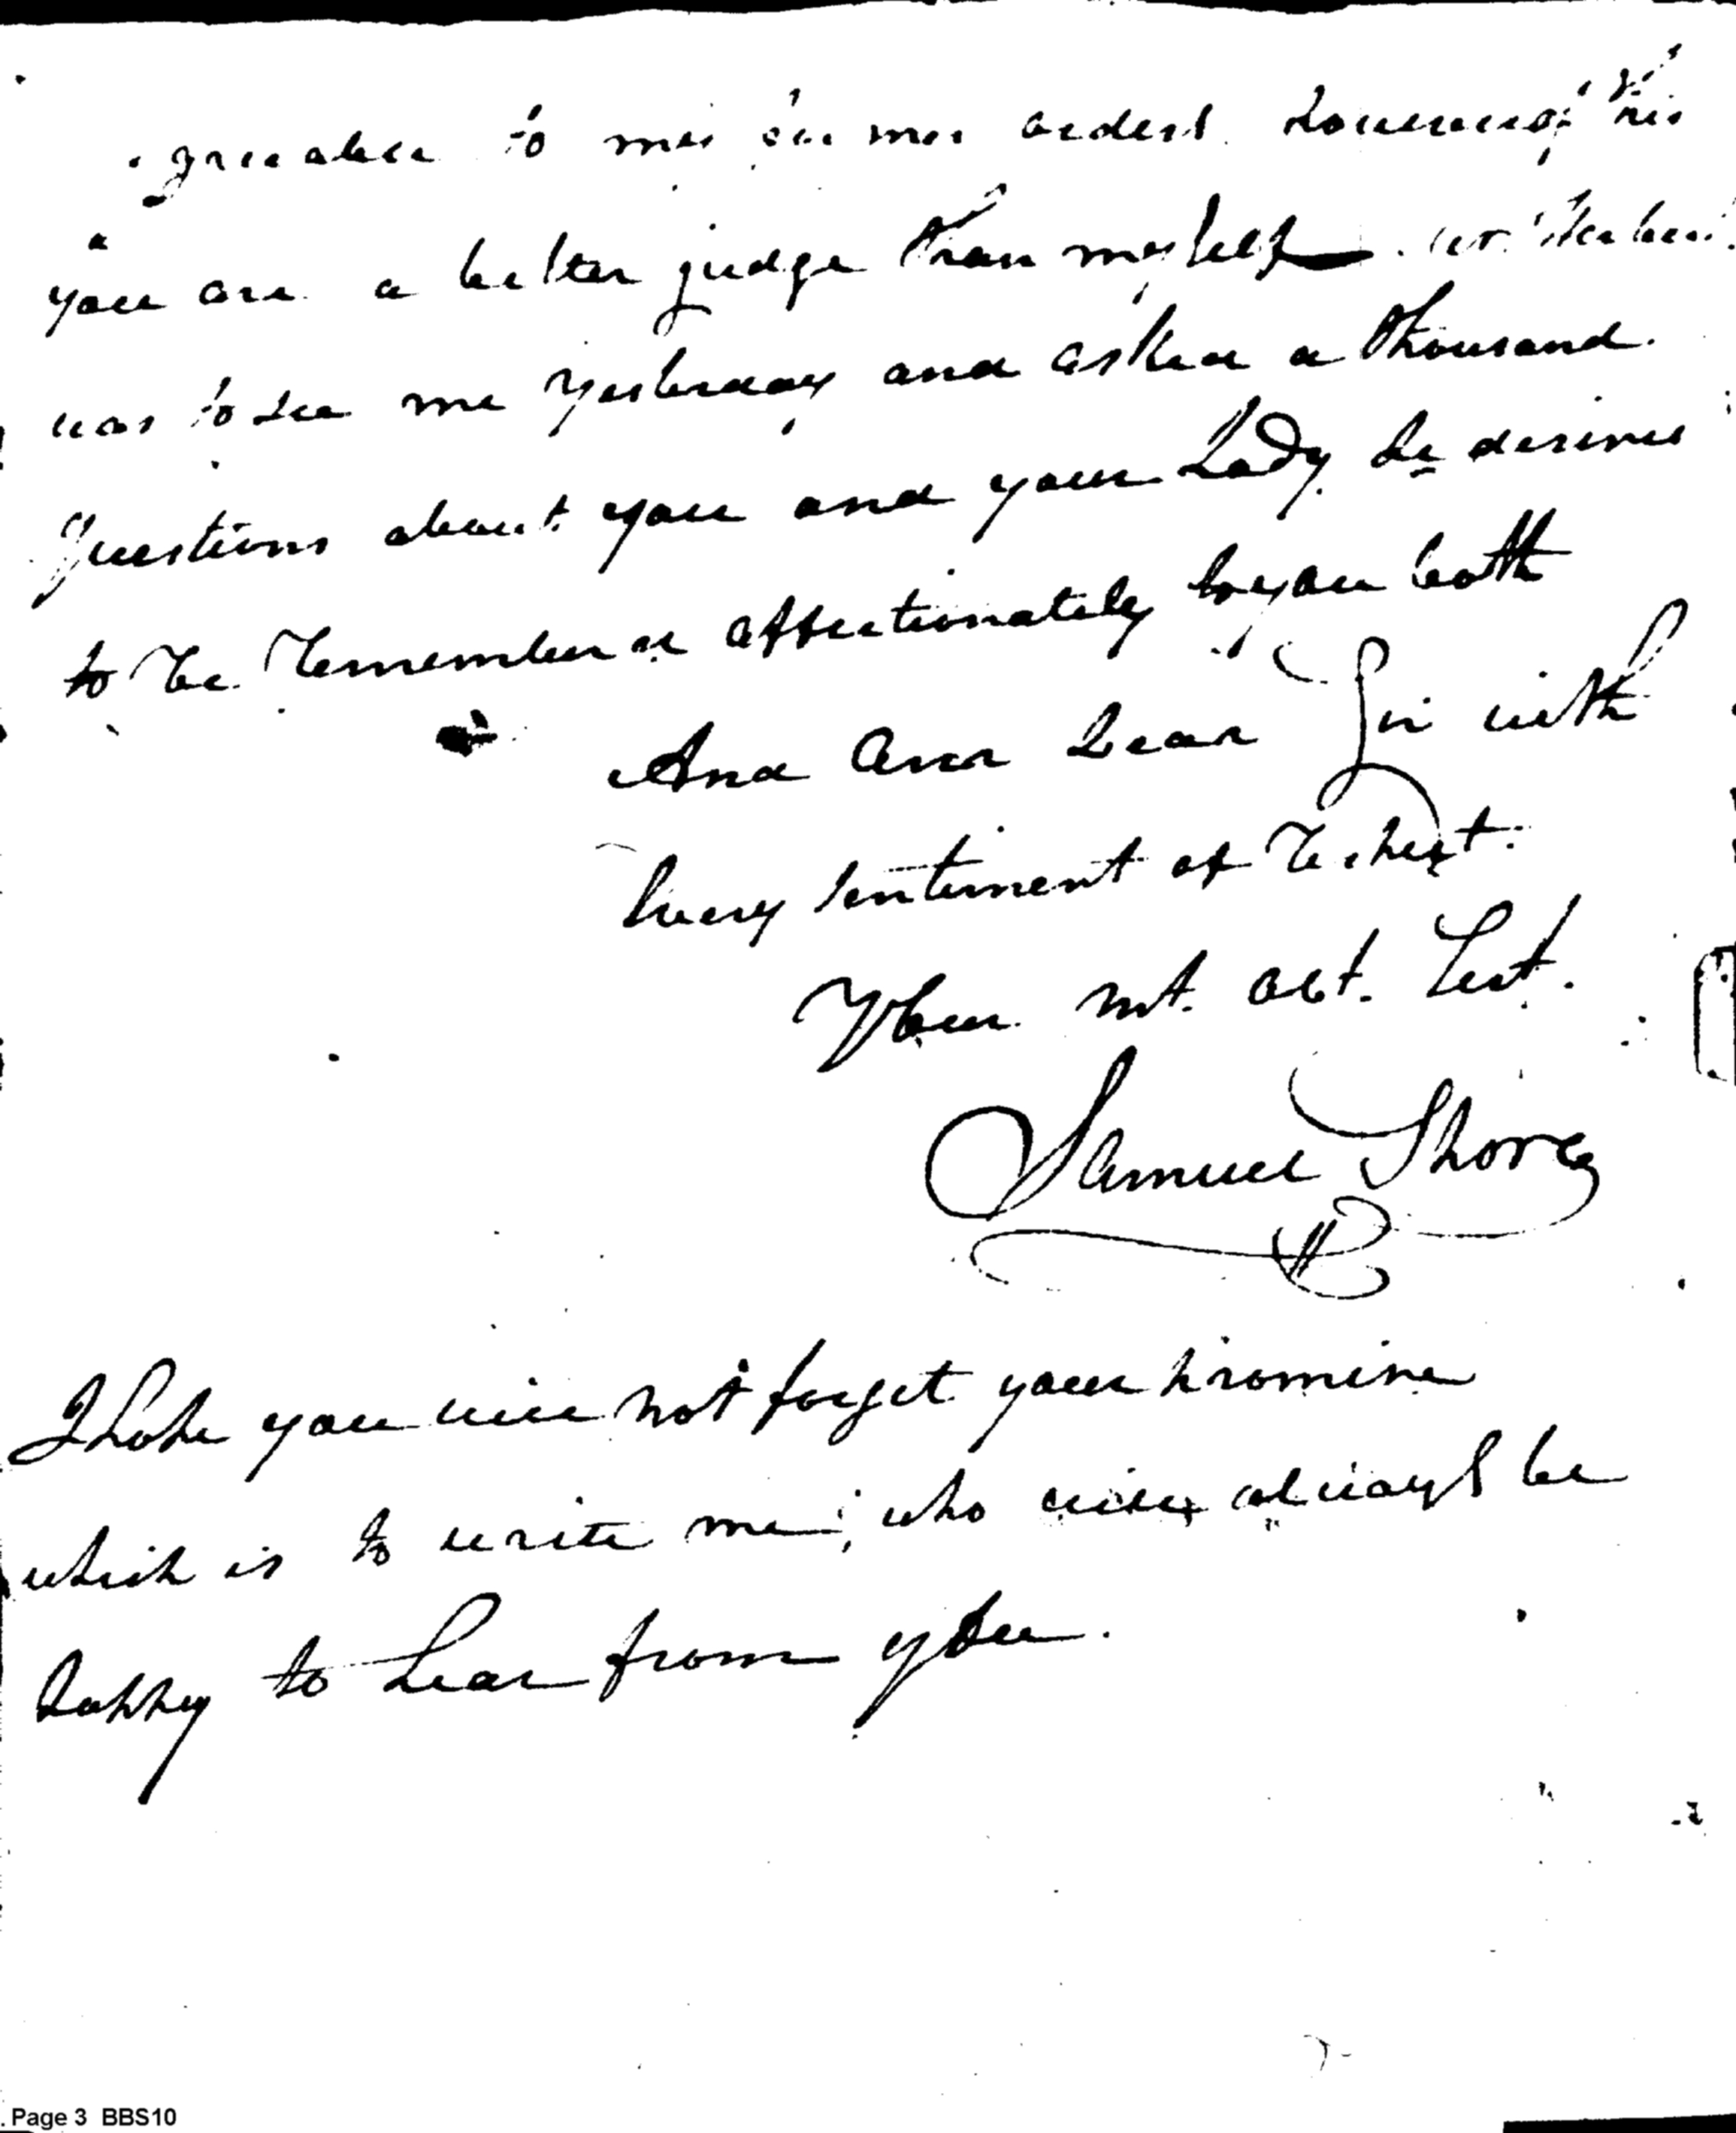 agreeable to my
you are a better judge than myself.
was to see me Yesterday and asked a thousand
Questions about you and your Lady, he desires
to be remembered affectionately to you both
And am Dear Sir with
Every sentiment of Respect.
Your mt. obt. Sert.
Samuel Shore
I hope you will not forget your promise
which is to write me; who will always be
happy to hear from you.
Page 3 BBS10